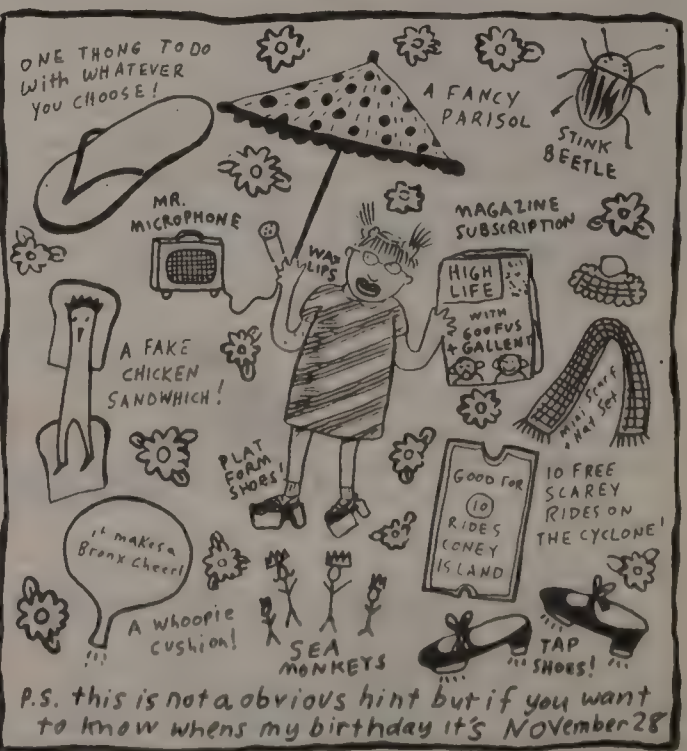 ONE THONG TO DO
With WHATEVER
YOU CHOOSE!
A FANCY
PARISOL
STINK
BEETLE
MR.
MICROPHONE
WAX
LIPS
MAGAZINE
SUBSCRIPTION
HIGH
LIFE
WITH
GOOFUS
+ GALLENT
mini scarf
+ Hat Set
A FAKE
CHICKEN
SANDWHICH!
PLAT
FORM
SHOES!
GOOD FOR
10
RIDES
CONEY
ISLAND
10 FREE
SCAREY
RIDES ON
THE CYCLONE!
it makes a
Bronx Cheer!
A Whoopie
Cushion!
SEA
MONKEYS
TAP
SHOES!
P.S. this is not a obvious hint but if you want
to know whens my birthday it's NOVember 28